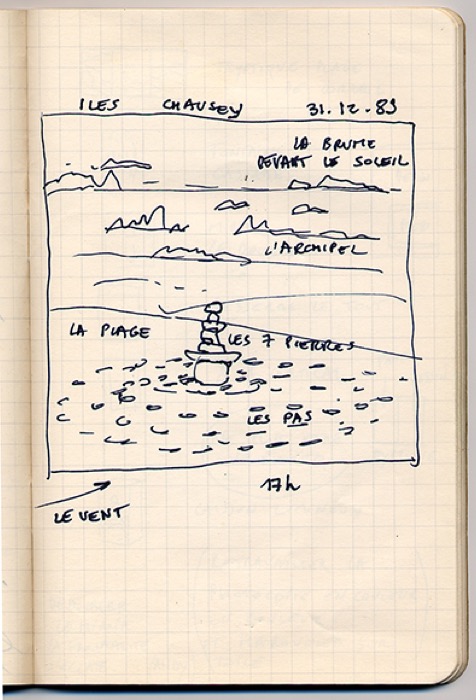 ILES CHAUSEY 31.12.89
LA BRUME
DEVANT LE SOLEIL
L'ARCHIPEL
LA PLAGE
LES 7 PIERRES
LES PAS
17h
LE VENT